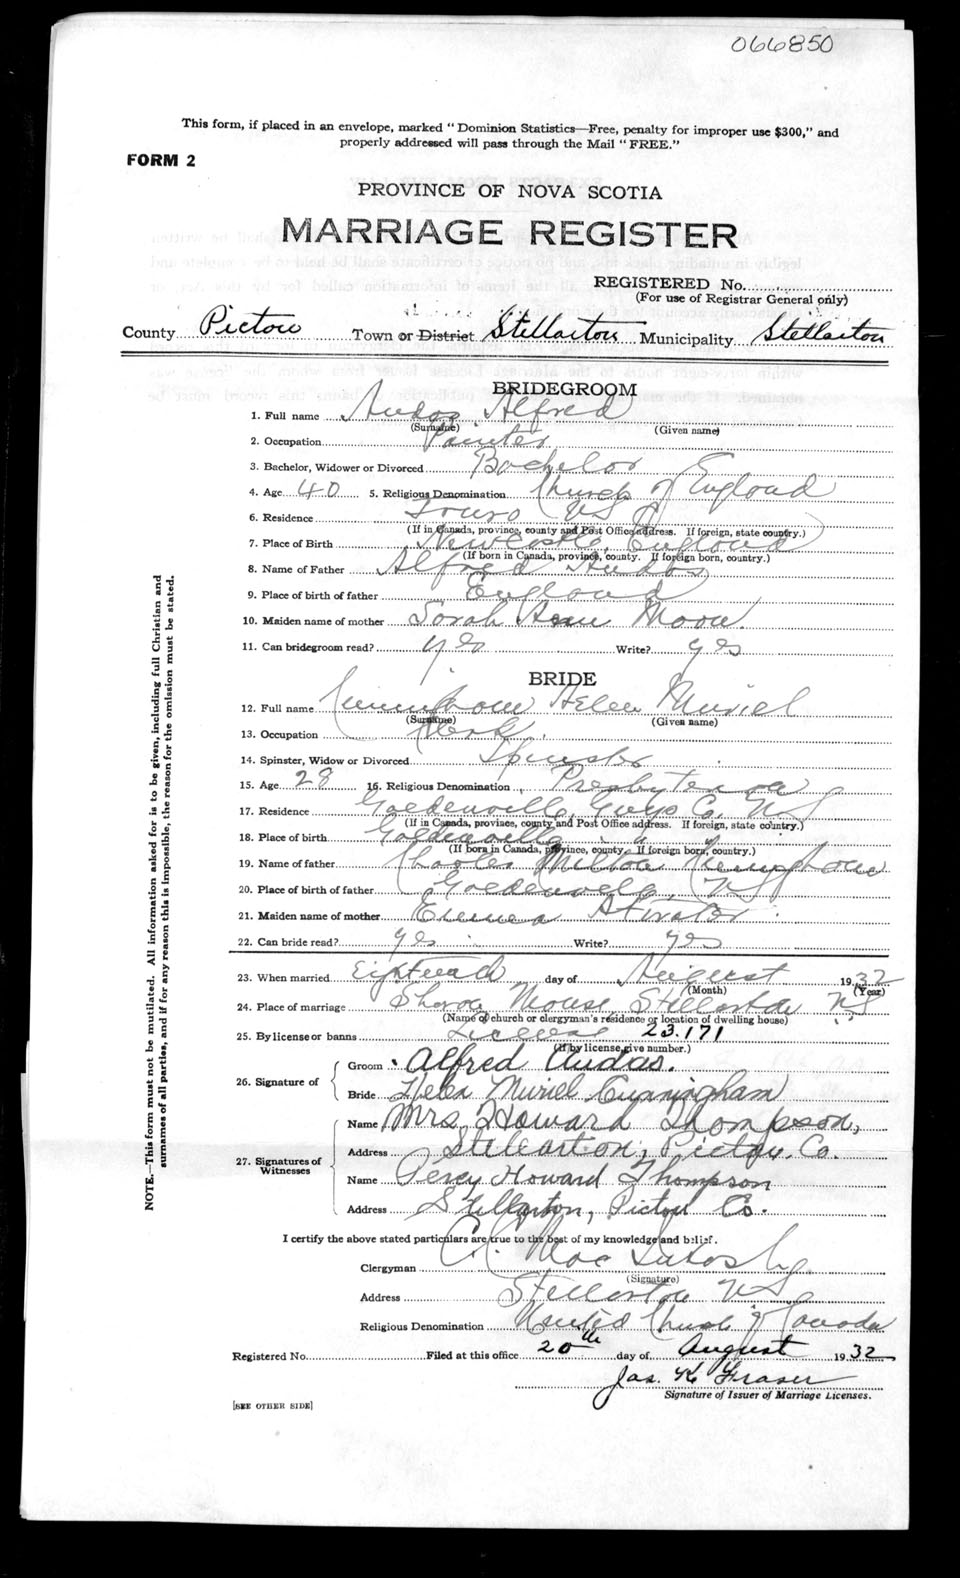 066850
This form, if placed in an envelope, marked "Dominion Statistics—Free, penalty for improper use $300," and
properly addressed will pass through the Mail "FREE."
FORM 2
PROVINCE OF NOVA SCOTIA
MARRIAGE REGISTER
REGISTERED No.
(For use of Registrar General only)
County Pictou Town or District Stellarton Municipality Stellarton
BRIDEGROOM
1. Full name Audas Alfred
(Surname) (Given name)
2. Occupation Painter
3. Bachelor, Widower or Divorced Bachelor
4. Age 40 5. Religious Denomination Church of England
6. Residence Truro N S
(If in Canada, province, county and Post Office address. If foreign, state country.)
7. Place of Birth Newcastle, England
(If born in Canada, province, county. If foreign born, country.)
8. Name of Father Alfred Audas
9. Place of birth of father England
10. Maiden name of mother Sarah Ann Moon.
11. Can bridegroom read? yes Write? yes
BRIDE
12. Full name Cunningham Helen Muriel
(Surname) (Given name)
13. Occupation Clerk
14. Spinster, Widow or Divorced Spinster
15. Age 28 16. Religious Denomination Presbyterian
17. Residence Goldenville, Guys Co. N S
(If in Canada, province, county and Post Office address. If foreign, state country.)
18. Place of birth Goldenville
(If born in Canada, province, county. If foreign born, country.)
19. Name of father Charles Milton Cunningham
20. Place of birth of father Goldenville, N S
21. Maiden name of mother Emma
22. Can bride read? yes Write? yes
23. When married Eighteenth day of August 1932
(Month) (Year)
24. Place of marriage Sharon Manse, Stellarton N S
(Name of church or clergyman's residence or location of dwelling house)
25. By license or banns License 23.171
(If by license, give number.)
26. Signature of Groom Alfred Audas.
Bride Helen Muriel Cunningham
27. Signatures of Witnesses Name Mrs. Howard Thompson,
Address Stellarton, Pictou, Co.
Name Percy Howard Thompson
Address Stellarton, Pictou Co.
I certify the above stated particulars are true to the best of my knowledge and belief.
Clergyman C. C. MacIntosh
(Signature)
Address Stellarton N S
Religious Denomination United Church of Canada
Registered No. Filed at this office 20th day of August 1932
Jas. K Fraser
Signature of Issuer of Marriage Licenses.
[SEE OTHER SIDE]
NOTE.—This form must not be mutilated. All information asked for is to be given, including full Christian and
surnames of all parties, and if for any reason this is impossible, the reason for the omission must be stated.